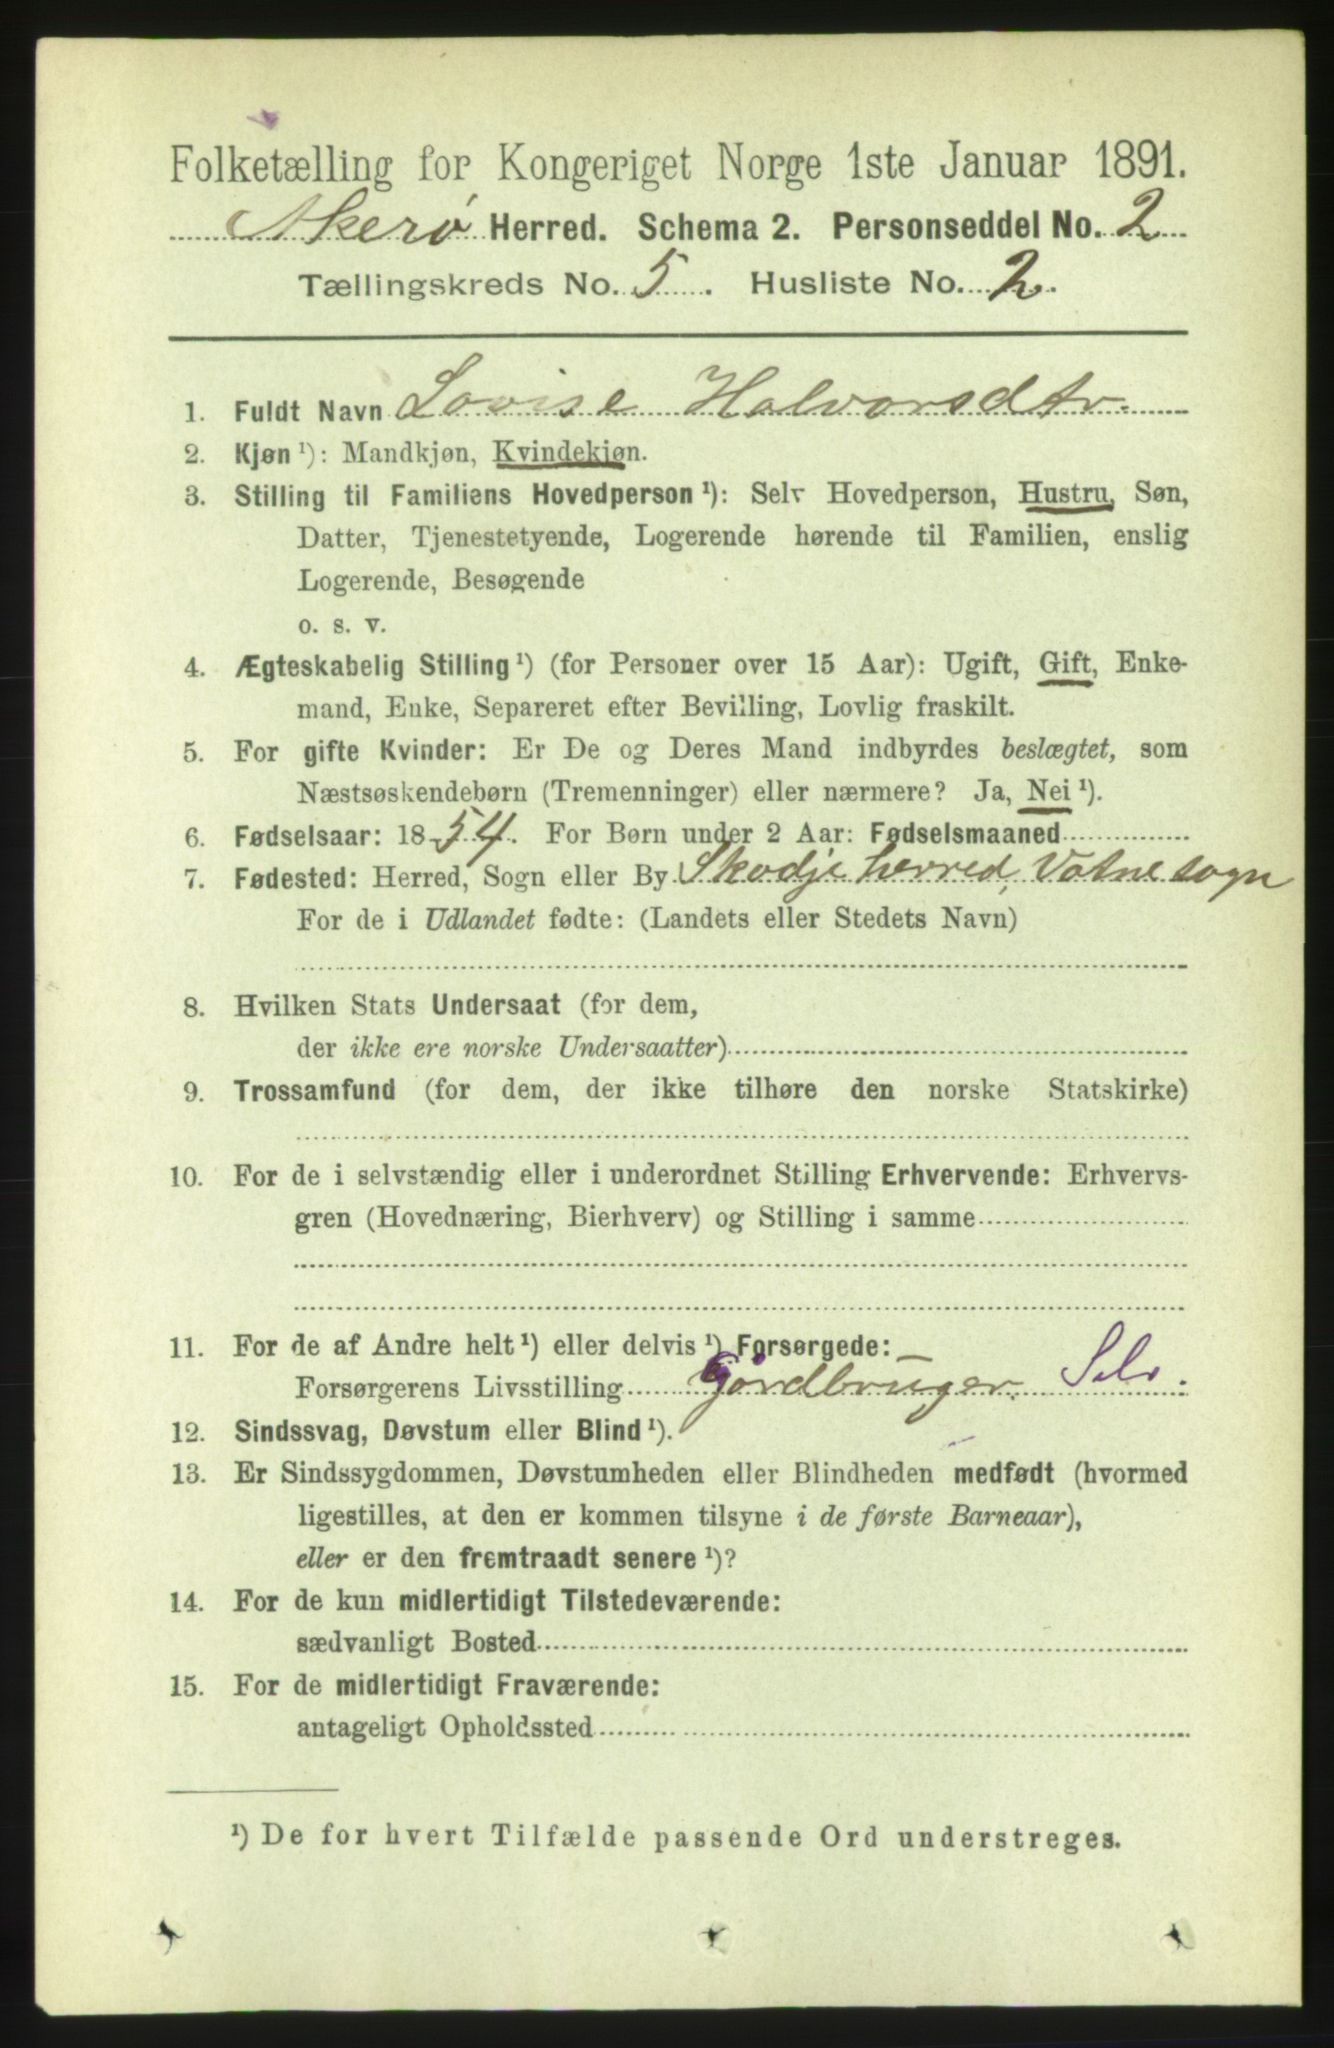 Folketælling for Kongeriget Norge 1ste Januar 1891.
Akerø Herred. Schema 2. Personseddel No. 2
Tællingskreds No. 5. Husliste No. 2.
1. Fuldt Navn Lovise Halvorsdtr.
2. Kjøn ¹): Mandkjøn, Kvindekjøn.
3. Stilling til Familiens Hovedperson ¹): Selv Hovedperson, Hustru, Søn,
Datter, Tjenestetyende, Logerende hørende til Familien, enslig
Logerende, Besøgende
o. s. v.
4. Ægteskabelig Stilling ¹) (for Personer over 15 Aar): Ugift, Gift, Enke-
mand, Enke, Separeret efter Bevilling, Lovlig fraskilt.
5. For gifte Kvinder: Er De og Deres Mand indbyrdes beslægtet, som
Næstsøskendebørn (Tremenninger) eller nærmere? Ja, Nei ¹).
6. Fødselsaar: 1854. For Børn under 2 Aar: Fødselsmaaned
7. Fødested: Herred, Sogn eller By Skodje herred, Vatne sogn
For de i Udlandet fødte: (Landets eller Stedets Navn)
8. Hvilken Stats Undersaat (for dem,
der ikke ere norske Undersaatter)
9. Trossamfund (for dem, der ikke tilhøre den norske Statskirke)
10. For de i selvstændig eller i underordnet Stilling Erhvervende: Erhvervs-
gren (Hovednæring, Bierhverv) og Stilling i samme
11. For de af Andre helt ¹) eller delvis ¹) Forsørgede:
Forsørgerens Livsstilling Gårdbruger. Selv.
12. Sindssvag, Døvstum eller Blind ¹).
13. Er Sindssygdommen, Døvstumheden eller Blindheden medfødt (hvormed
ligestilles, at den er kommen tilsyne i de første Barneaar),
eller er den fremtraadt senere ¹)?
14. For de kun midlertidigt Tilstedeværende:
sædvanligt Bosted
15. For de midlertidigt Fraværende:
antageligt Opholdssted
¹) De for hvert Tilfælde passende Ord understreges.